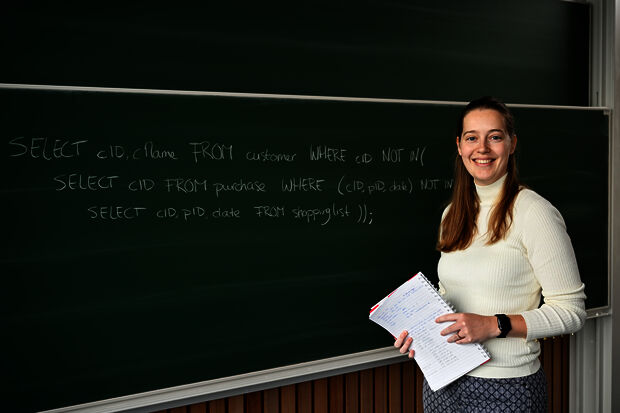 SELECT cID, cName FROM customer WHERE cID NOT IN(
SELECT cID FROM purchase WHERE (cID, pID, date) NOT IN
SELECT cID, pID, date FROM shoppinglist ));